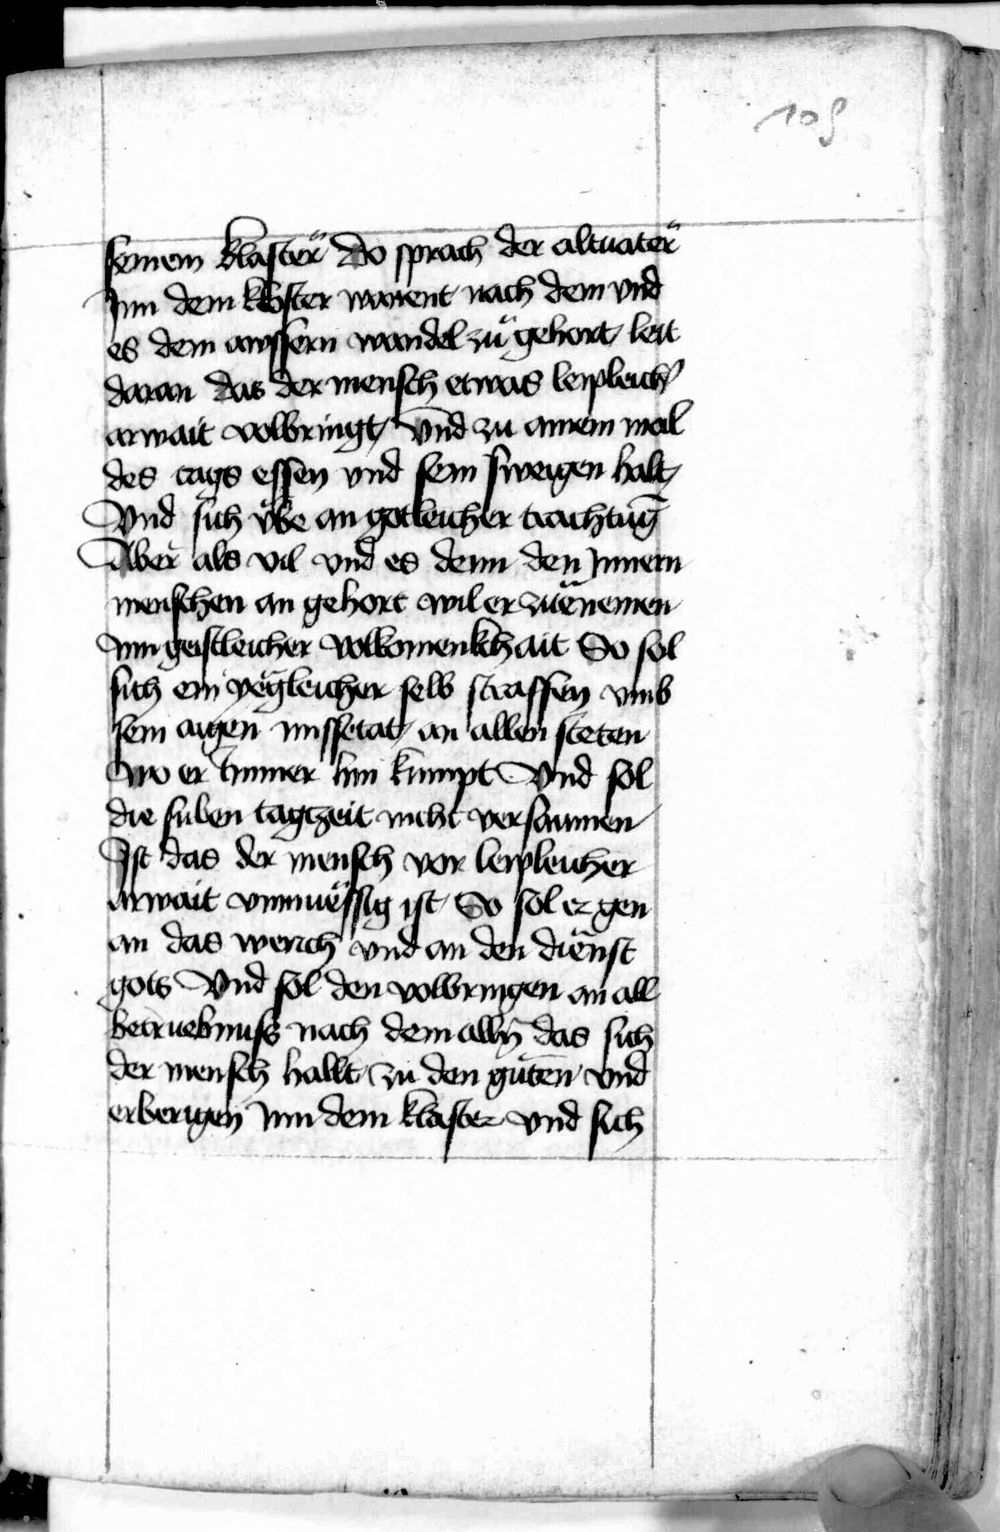 109
seinem klaster Do sprach der altuater
Inn dem kloster wonent nach dem vnd
es dem awssern wandel zů gehort leit
daran das der mensch etwas leipleich
arwait volbringt Vnd zu ainem mal
des tags essen vnd sein sweigen halt
Vnd sich vͤbe an gotleicher trachtūg
Aber als vil vnd es denn den Innern
menschen an gehort wil er zuenemen
inn geistleicher volkomenkhait So sol
sich ein yegleicher selb straffen vmb
sein aigen missetat an allen steten
wo er Immer hin kumpt Vnd sol
die siben tagtzeit nicht versaumen
Ist das der mensch vor leipleicher
arwait vnmuessig ist So sol er gen
an das werch vnd an den dienst
gots Vnd sol den volbringen an all
betruebnuss nach dem allň das sich
der mensch hallt zu den guten vnd
erberigen Inn dem klaster vnd sich